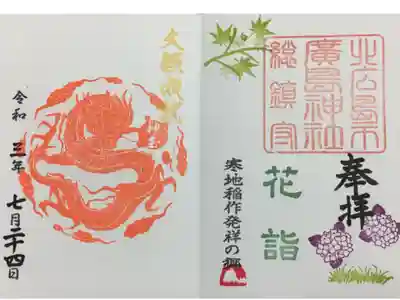 北広島市
廣島神社
総鎮守
奉拝
花詣
寒地稲作発祥の郷
令和三年七月二十四日